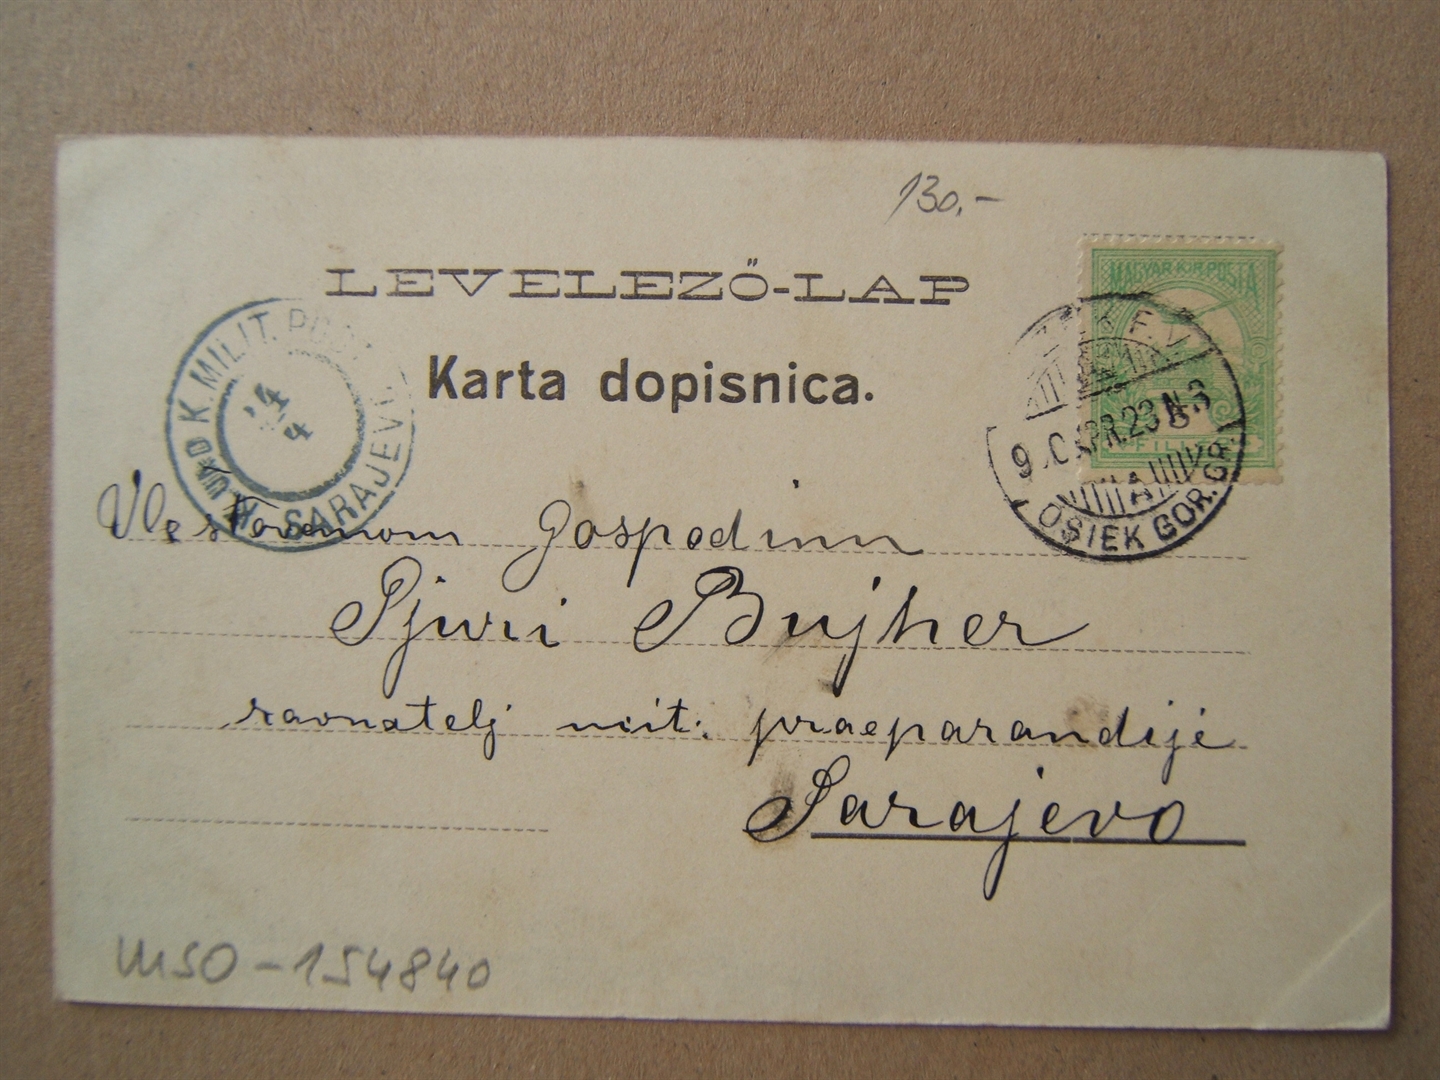 130.-
LEVELEZŐ-LAP
Karta dopisnica.
MAGYAR KIR. POSTA
FILLÉR
K. UND K. MILIT. POST
SARAJEVO
4
APR. 23
OSIEK GOR. GR.
Velestovanom Gospodinu
Pjuri Bujher
ravnatelj učit. praeparandije
Sarajevo
MSO-154840